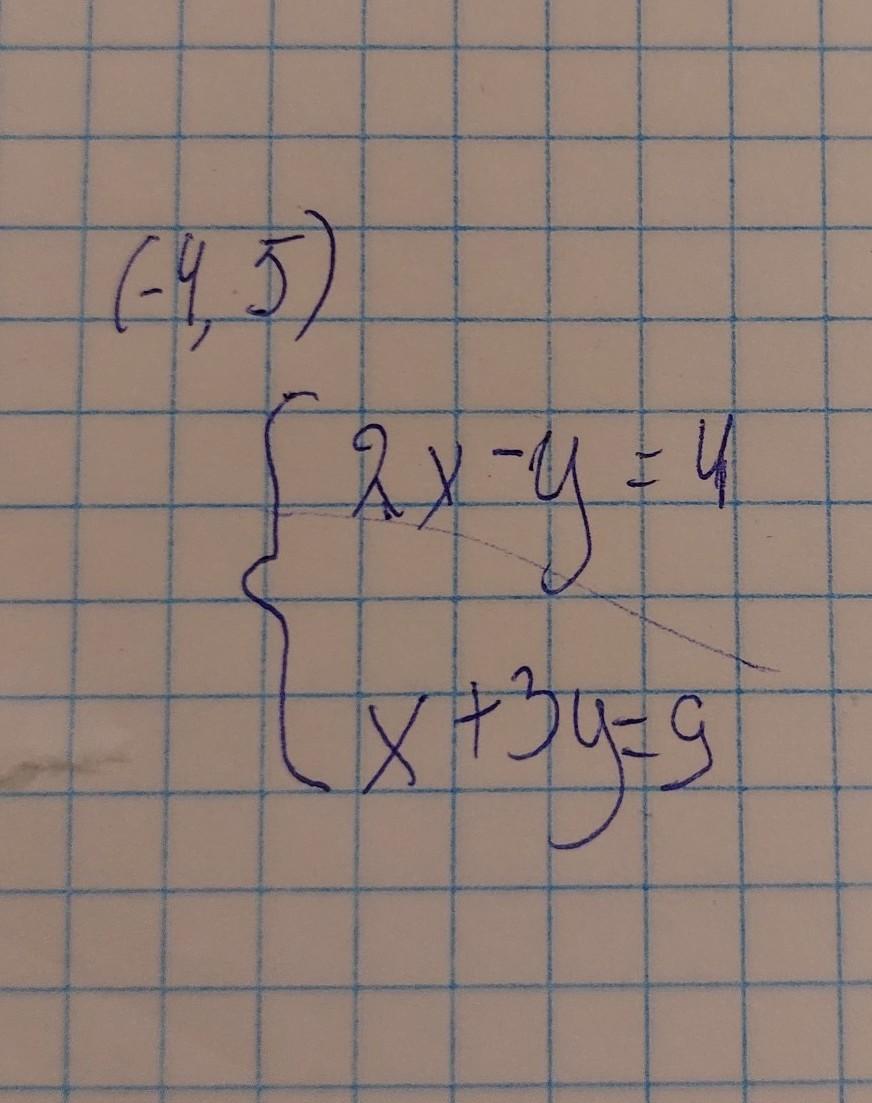 (-4, 5)
2x - y = 4
x + 3y = 9